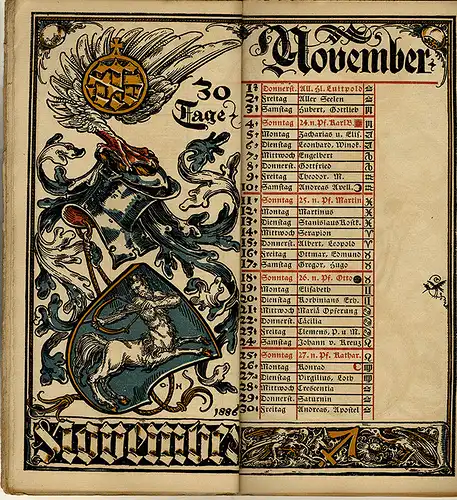 30
Tage
O H
1886
November
November
1 Donnerst. All. Hl. Luitpold
2 Freitag Aller Seelen
3 Samstag Hubert, Gottlieb
4 Sonntag 24. n. Pf. Karl B.
5 Montag Zacharias u. Elis.
6 Dienstag Leonhard, Winok.
7 Mittwoch Engelbert
8 Donnerst. Gottfried
9 Freitag Theodor. M.
10 Samstag Andreas Avell.
11 Sonntag 25. n. Pf. Martin
12 Montag Martinus
13 Dienstag Stanislaus Kostk.
14 Mittwoch Serapion
15 Donnerst. Albert, Leopold
16 Freitag Ottmar, Edmund
17 Samstag Gregor, Hugo
18 Sonntag 26. n. Pf. Otto
19 Montag Elisabeth
20 Dienstag Korbinians Erh.
21 Mittwoch Mariä Opferung
22 Donnerst. Cäcilia
23 Freitag Clemens, P. u. M.
24 Samstag Johann v. Kreuz
25 Sonntag 27. n. Pf. Kathar.
26 Montag Konrad
27 Dienstag Virgilius, Loth
28 Mittwoch Crescentia
29 Donnerst. Saturnin
30 Freitag Andreas, Apostel